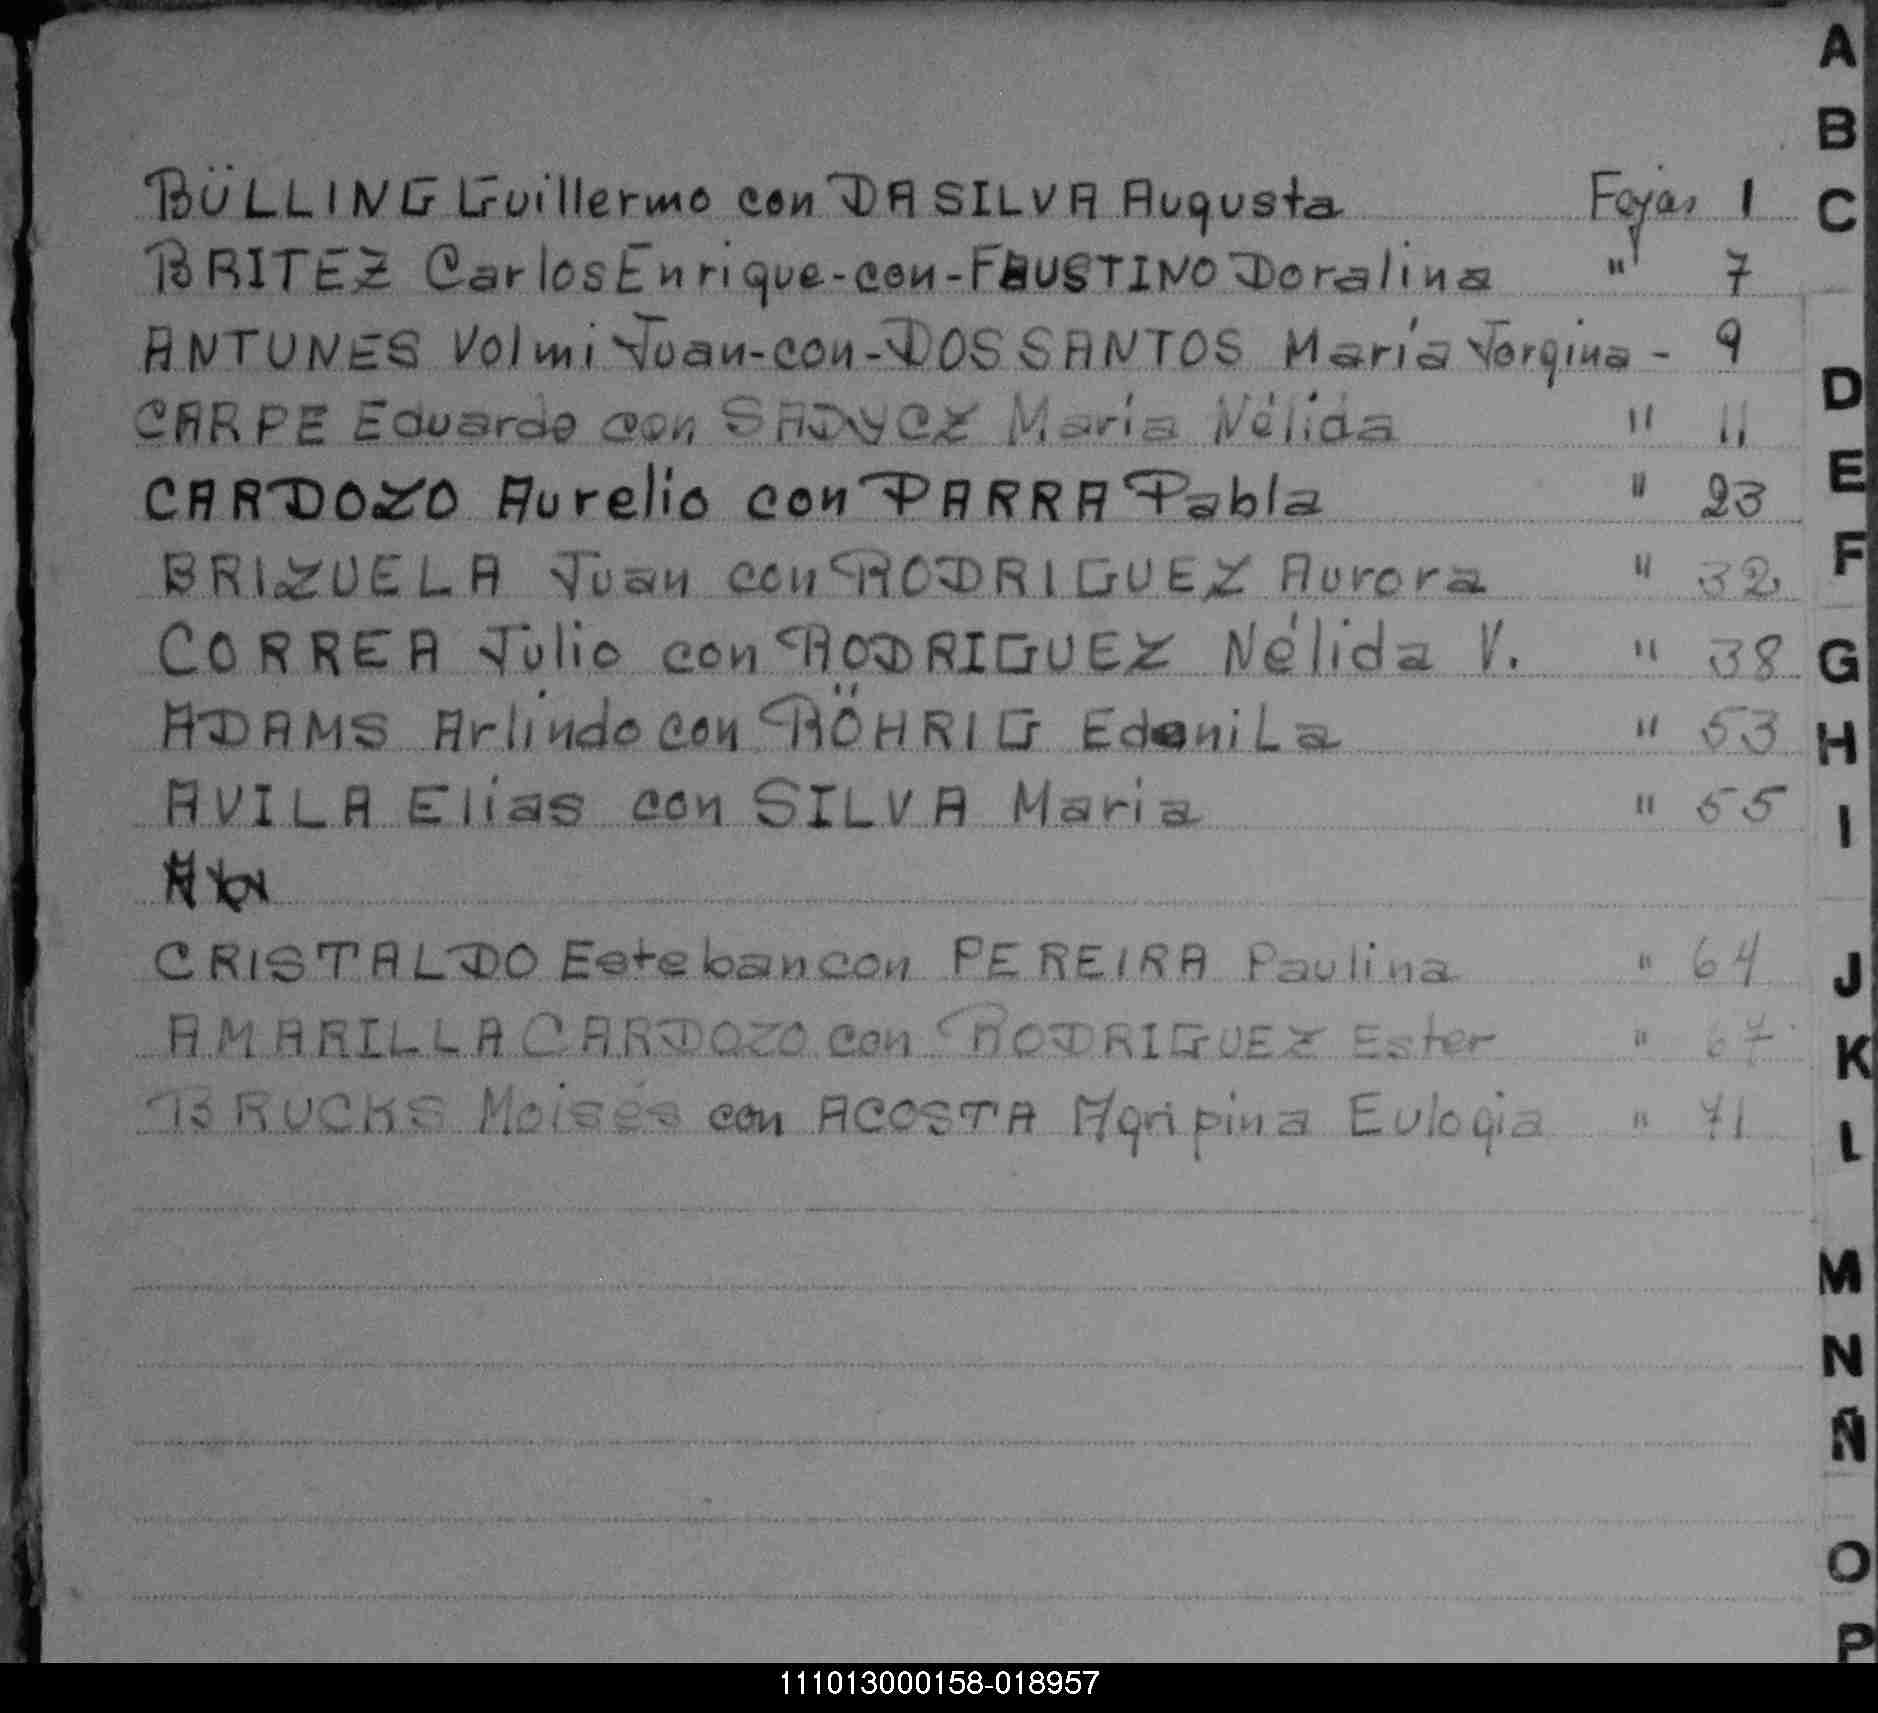 BÜLLING Guillermo con DA SILVA Augusta Fojas 1
BRITEZ Carlos Enrique-con-FAUSTINO Doralina " 7
ANTUNES Volmi Juan-con-DOS SANTOS María Jorgina - 9
CARPE Eduardo con SADYCZ María Nélida " 11
CARDOZO Aurelio con PARRA Pabla " 23
BRIZUELA Juan con RODRIGUEZ Aurora " 32
CORREA Julio con RODRIGUEZ Nélida V. " 38
ADAMS Arlindo con RÖHRIG Edenila " 53
AVILA Elias con SILVA Maria " 55
CRISTALDO Esteban con PEREIRA Paulina " 64
AMARILLA CARDOZO con RODRIGUEZ Ester " 67
BRUCKS Moisés con ACOSTA Agripina Eulogia " 71
A
B
C
D
E
F
G
H
I
J
K
L
M
N
Ñ
O
P
111013000158-018957